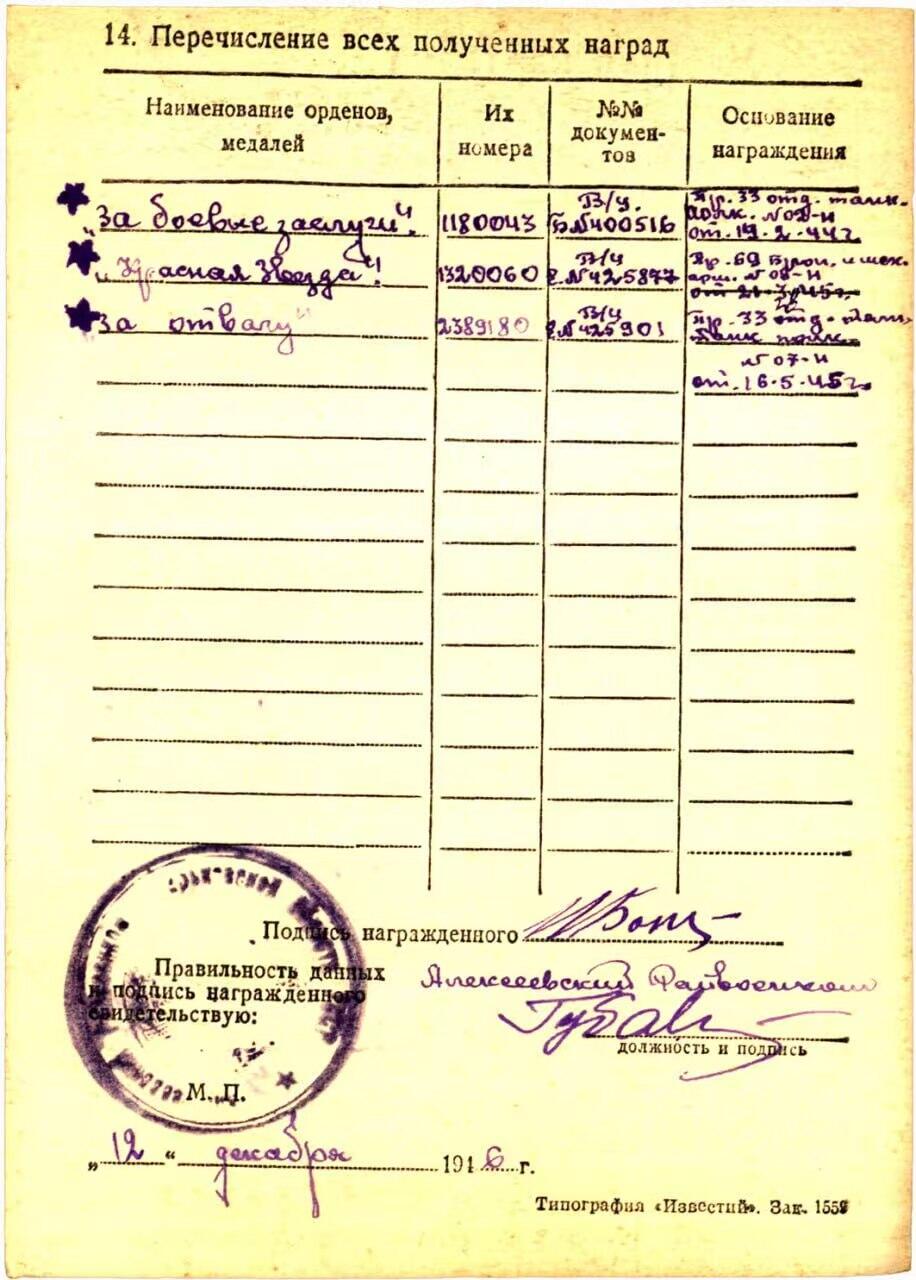 14. Перечисление всех полученных наград
Наименование орденов,
медалей
Их
номера
№№
докумен-
тов
Основание
награждения
"За боевые заслуги".
1180043
В/у.
Б№400516
Пр. 33 отд. танк.
полк. №02-н
от. 19-2-44г.
"Красная Звезда"!
1320060
В/у
Е.№425877
Пр. 69
арм. №08-н
от 21-3-45г.
За отвагу"
2389180
В/у
Е.№425901
Пр. 33 отд-
танк полк-
№07-н
от. 16-5-45г.
Подпись награжденного
Правильность данных
и подпись награжденного
свидетельствую:
Алексеевский Райвоенком
должность и подпись
М. П.
„12“ декабря 1946 г.
Типография «Известий». Зак. 1559